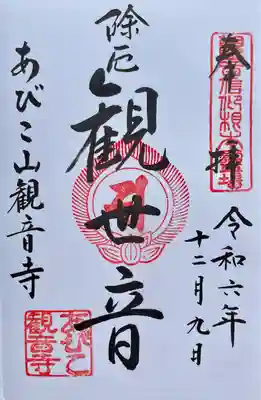 奉拝
令和六年
十二月九日
除厄
観世音
あびこ山観音寺
あびこ
観音寺